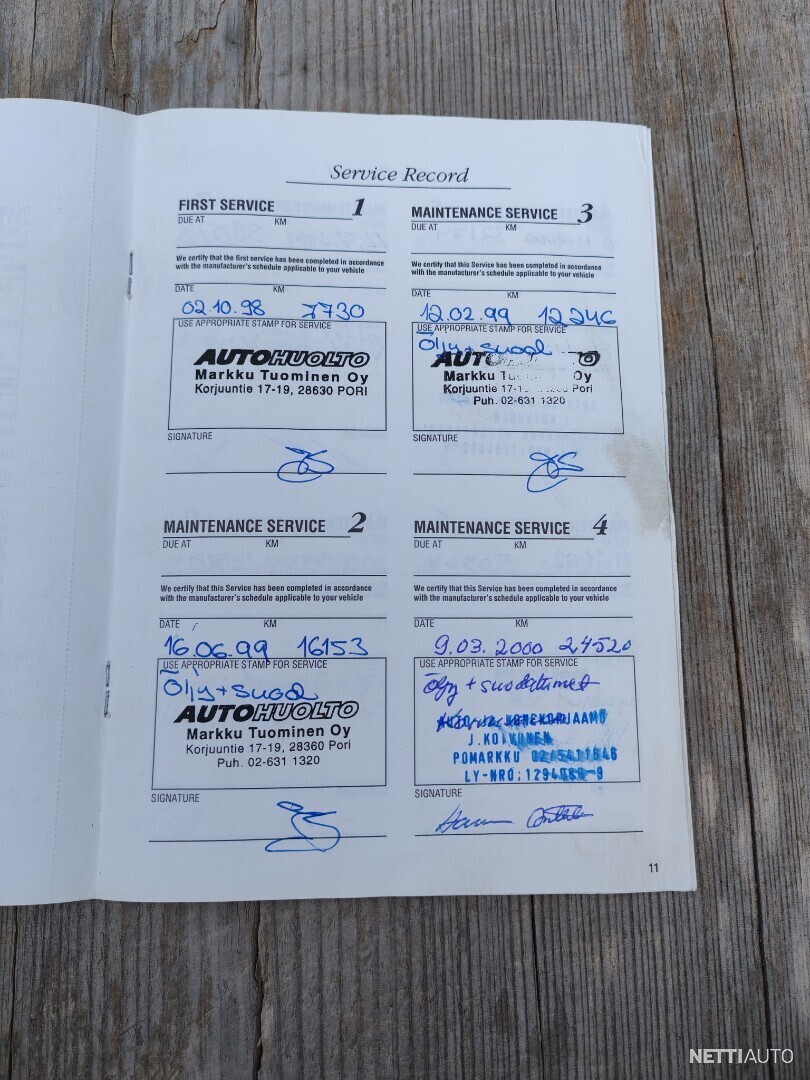 Service Record
FIRST SERVICE 1
DUE AT KM
We certify that the first service has been completed in accordance
with the manufacturer's schedule applicable to your vehicle
DATE KM
02.10.98 7730
USE APPROPRIATE STAMP FOR SERVICE
AUTOHUOLTO
Markku Tuominen Oy
Korjuuntie 17-19, 28630 PORI
SIGNATURE
MAINTENANCE SERVICE 2
DUE AT KM
We certify that this Service has been completed in accordance
with the manufacturer's schedule applicable to your vehicle
DATE KM
16.06.99 16153
USE APPROPRIATE STAMP FOR SERVICE
Öljy + suod
AUTOHUOLTO
Markku Tuominen Oy
Korjuuntie 17-19, 28360 Pori
Puh. 02-631 1320
SIGNATURE
MAINTENANCE SERVICE 3
DUE AT KM
We certify that this Service has been completed in accordance
with the manufacturer's schedule applicable to your vehicle
DATE KM
12.02.99 12246
USE APPROPRIATE STAMP FOR SERVICE
Öljy + suod
Markku Oy
Korjuuntie Pori
Puh. 02-631 1320
SIGNATURE
MAINTENANCE SERVICE 4
DUE AT KM
We certify that this Service has been completed in accordance
with the manufacturer's schedule applicable to your vehicle
DATE KM
9.03.2000 24520
USE APPROPRIATE STAMP FOR SERVICE
öljy + suodattimet
AUTO JA KONEKORJAAMO
J.KOIVUNEN
POMARKKU
LY-NRO;
SIGNATURE
11
NETTIAUTO